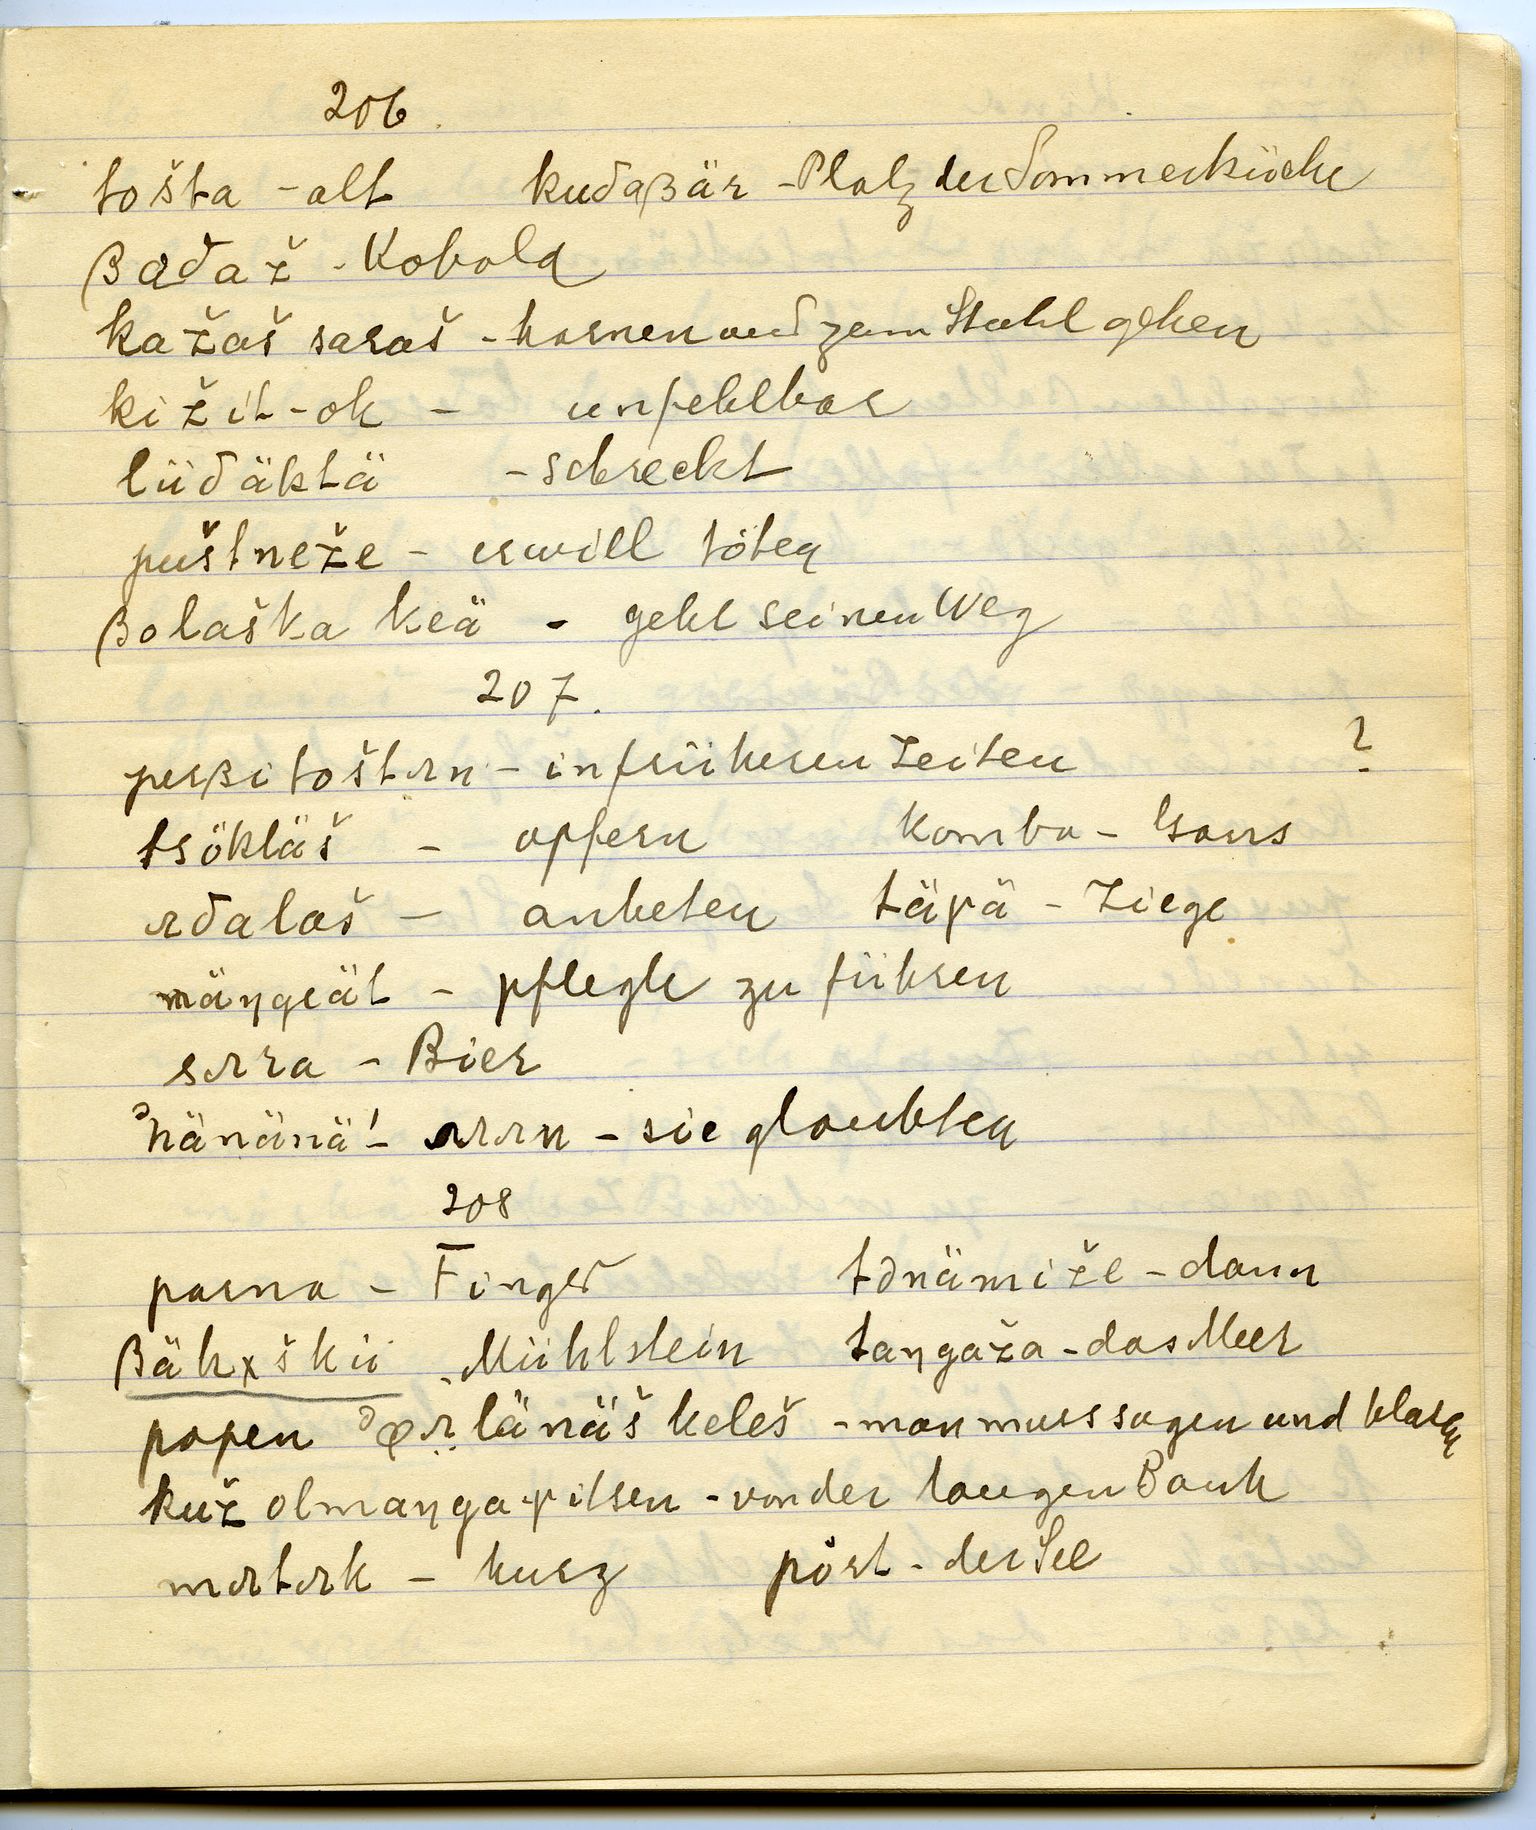 206.
tošta - alt kuδaβär - Platz der Sommerküche
βaδaž - Kobold
kažaš saraš - harnen und zum Stuhl gehen
kižit-ok - unfehlbar
lüδäktä - schreckt
puštneže - er will töten
βolaška keä - geht seinen Weg
207.
perβi toštən - in früheren Zeiten ?
tsöktäš - opfern kombo - Gans
əδalaš - anbeten täγä - Ziege
mäŋgeät - pflegte zu führen
səra - Bier
ənänänä! - ərən - sie glaubten
208
parna - Finger tənämiže - dann
βäkχškü - Mühlstein taŋgəža - das Meer
popen keleš - man muss sagen und klagen
kuž olmaŋga γitsen - von der langen Bank
mətək - kurz pört - der See